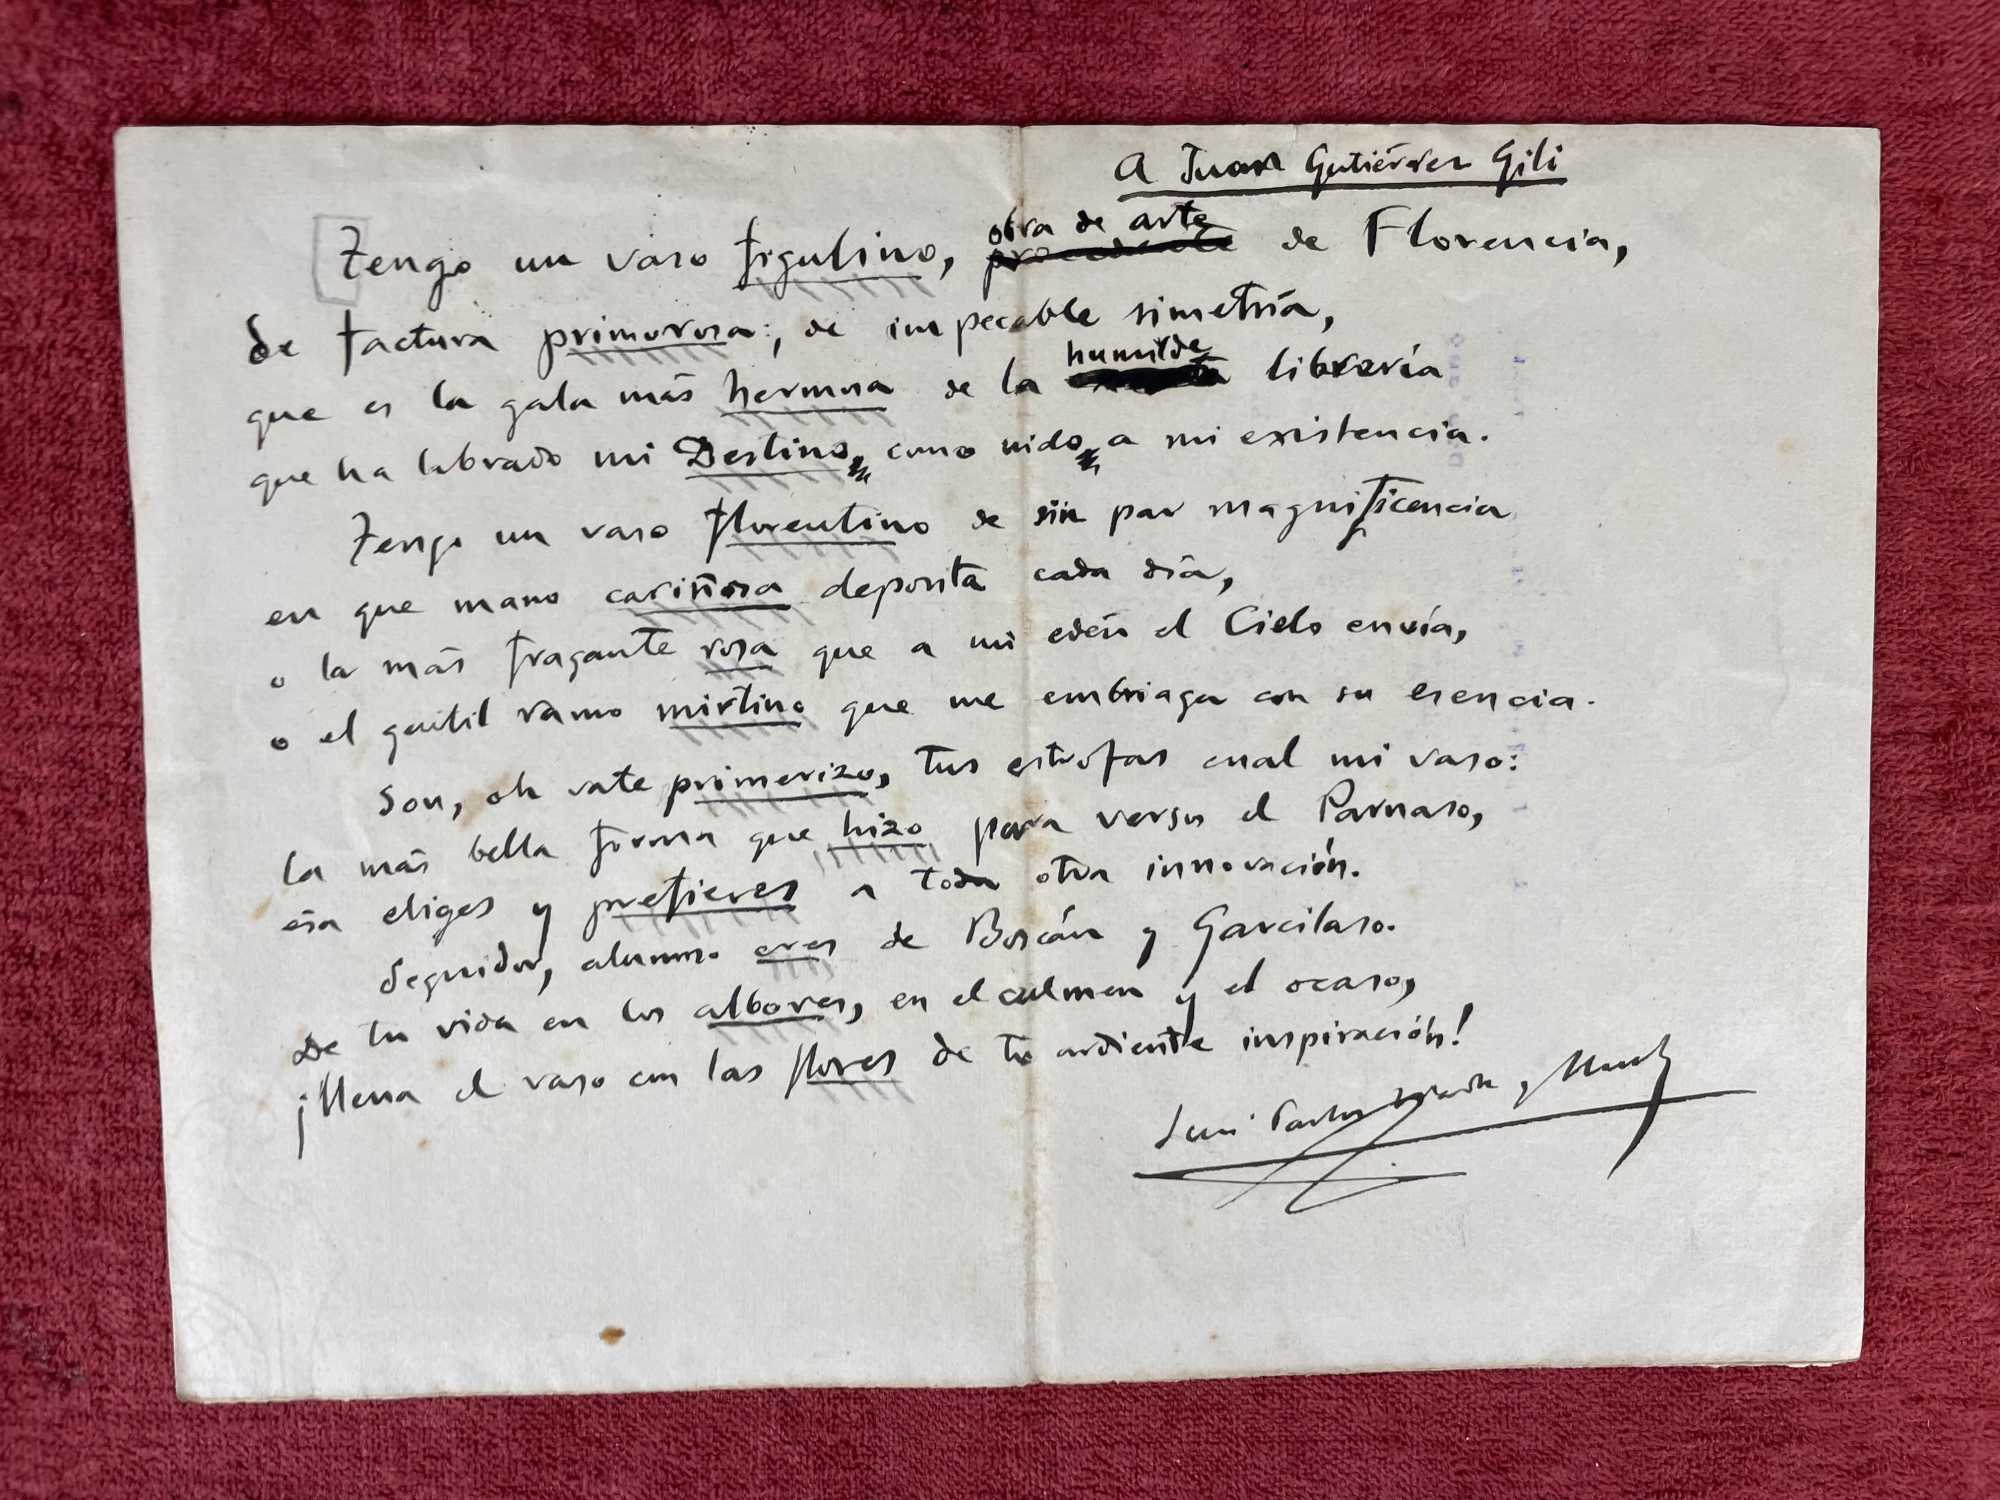 A Juan Gutiérrez Gili
Tengo un vaso figulino, obra de arte de Florencia,
de factura primorosa; de impecable simetría,
que es la gala más hermosa de la humilde librería
que ha labrado mi Destino como nido a mi existencia.
Tengo un vaso florentino de sin par magnificencia
en que mano cariñosa deposita cada día,
o la más fragante rosa que a mi edén el Cielo envía,
o el gentil ramo mirtino que me embriaga con su esencia.
Son, oh vate primerizo, tus estrofas cual mi vaso:
la más bella forma que hizo para versos el Parnaso,
esa eliges y prefieres a toda otra innovación.
Seguidor, alumno eres de Boscán y Garcilaso.
De tu vida en los albores, en el culmen y el ocaso,
¡llena el vaso con las flores de tu ardiente inspiración!
Luis Carlos y